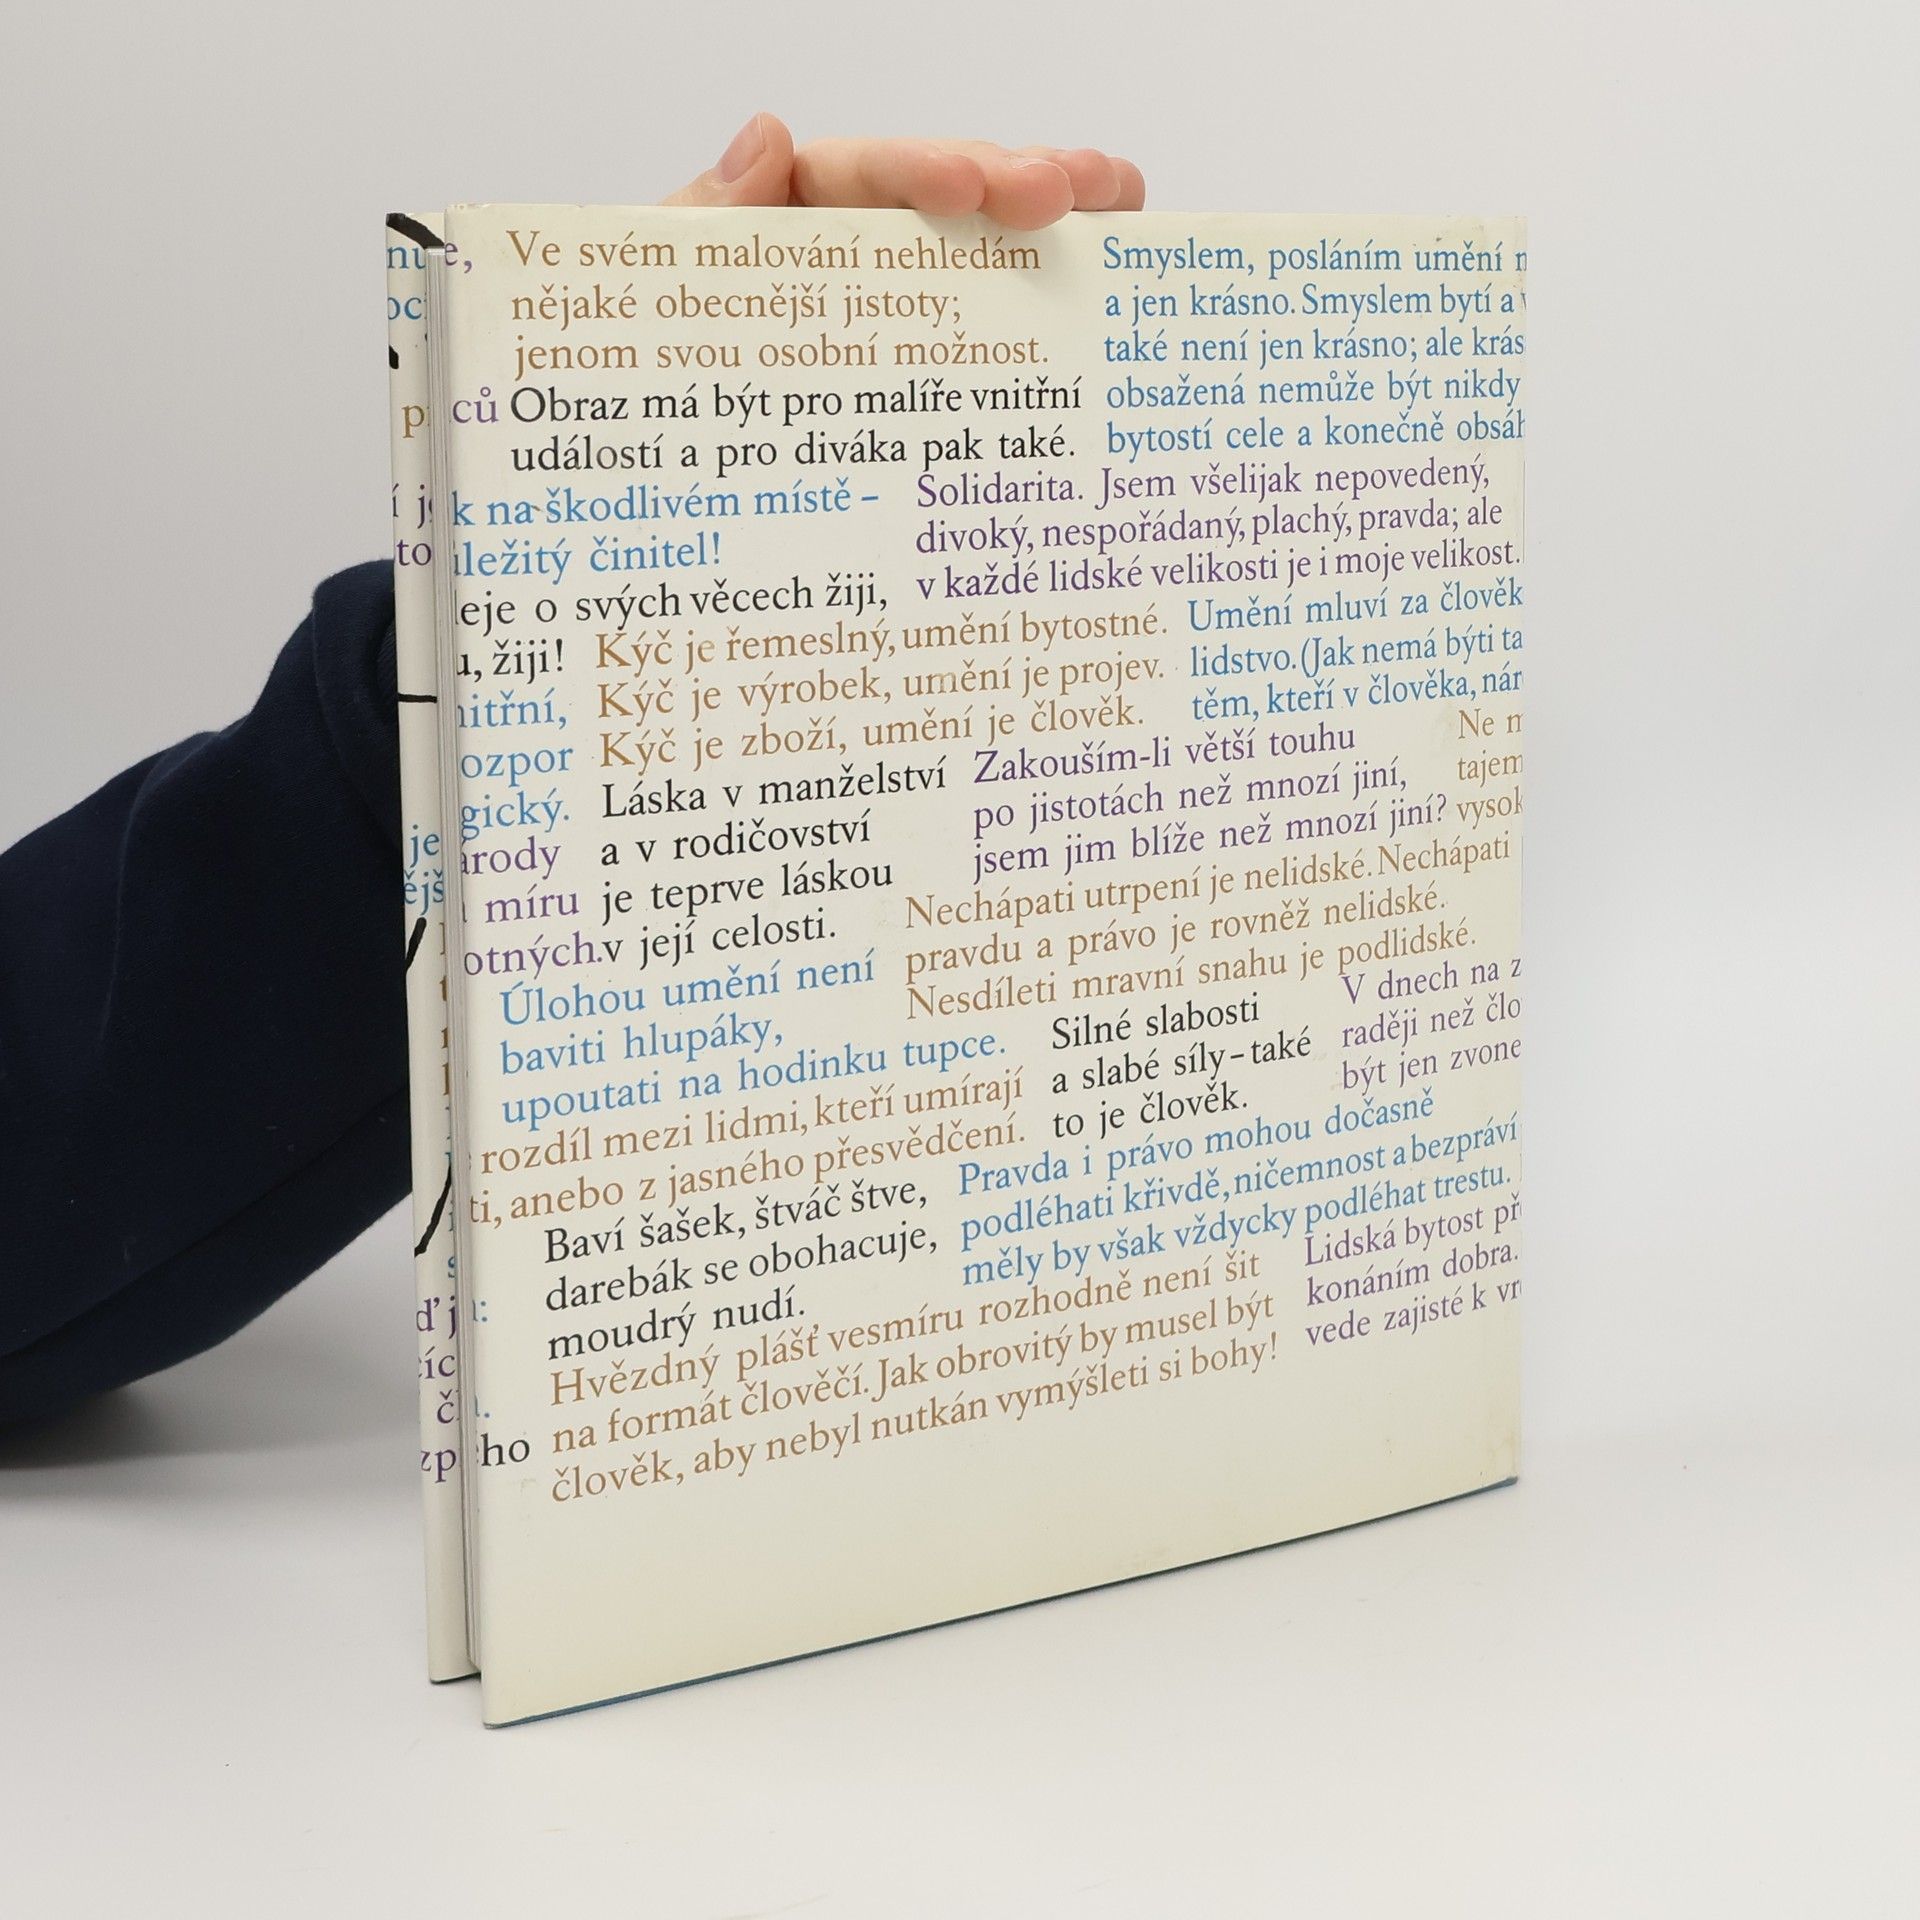 Ve svém malování nehledám
nějaké obecnější jistoty;
jenom svou osobní možnost.
Smyslem, posláním umění
a jen krásno. Smyslem bytí a
také není jen krásno; ale krás
obsažená nemůže být nikdy
bytostí cele a konečně obsáh
Obraz má být pro malíře vnitřní
událostí a pro diváka pak také.
k na škodlivém místě –
ležitý činitel!
Solidarita. Jsem všelijak nepovedený,
divoký, nespořádaný, plachý, pravda; ale
v každé lidské velikosti je i moje velikost.
eje o svých věcech žiji,
u, žiji!
Kýč je řemeslný, umění bytostné.
Kýč je výrobek, umění je projev.
Kýč je zboží, umění je člověk.
Umění mluví za člověk
lidstvo. (Jak nemá býti ta
těm, kteří v člověka, nár
nitřní,
ozpor
gický.
Láska v manželství
a v rodičovství
je teprve láskou
v její celosti.
Zakouším-li větší touhu
po jistotách než mnozí jiní,
jsem jim blíže než mnozí jiní?
Ne
tajem
vysok
árody
míru
otných.
Nechápati utrpení je nelidské. Nechápati
pravdu a právo je rovněž nelidské.
Nesdíleti mravní snahu je podlidské.
Úlohou umění není
baviti hlupáky,
upoutati na hodinku tupce.
Silné slabosti
a slabé síly – také
to je člověk.
V dnech na z
raději než člo
být jen zvone
rozdíl mezi lidmi, kteří umírají
ti, anebo z jasného přesvědčení.
Pravda i právo mohou dočasně
podléhati křivdě, ničemnost a bezpráví
měly by však vždycky podléhat trestu.
Baví šašek, štváč štve,
darebák se obohacuje,
moudrý nudí.
Lidská bytost př
konáním dobra.
vede zajisté k vr
Hvězdný plášť vesmíru rozhodně není šit
na formát člověčí. Jak obrovitý by musel být
člověk, aby nebyl nutkán vymýšleti si bohy!
ho